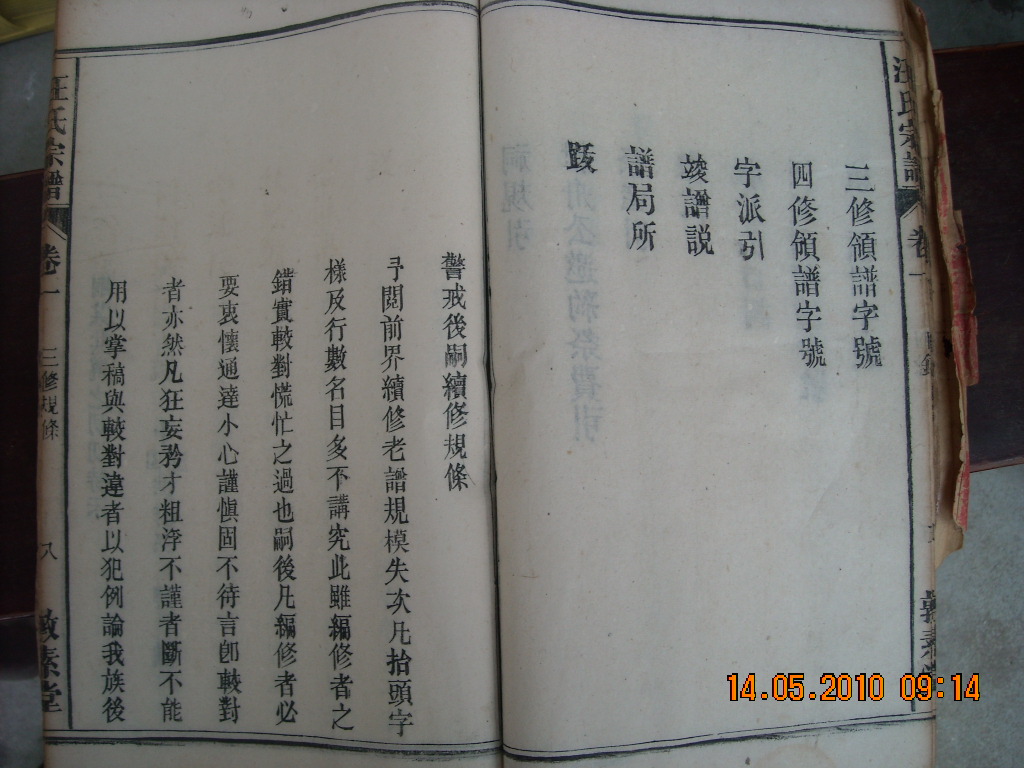 汪氏宗譜
卷一
三修領譜字號
四修領譜字號
字派引
竣譜説
譜局所
跋
警戒後嗣續修規條
予閱前界續修老譜規模失次凡抬頭字
樣及行數名目多不講究此雖編修者之
錯實較對慌忙之過也嗣後凡編修者必
要衷懷通達小心謹愼固不待言卽較對
者亦然凡狂妄矜才粗浮不謹者斷不能
用以掌稿與較對違者以犯例論我族後
汪氏宗譜
卷一
三修規條
八
素堂
14.05.2010 09:14